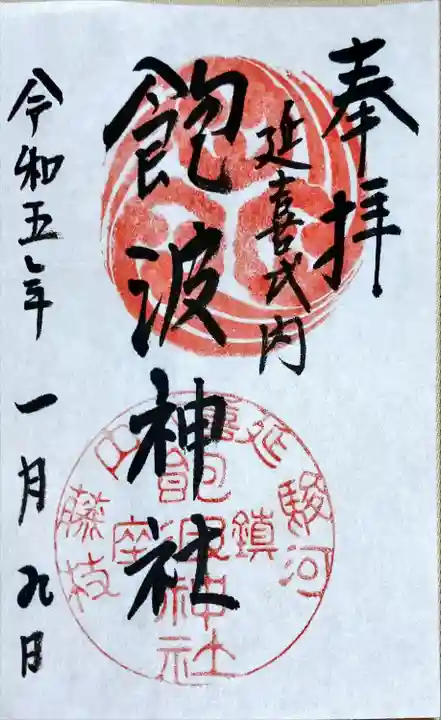 奉拝
延喜式内
飽波神社
令和五年 一月九日
駿河
延喜
内
鎮座
藤枝
飽波神社